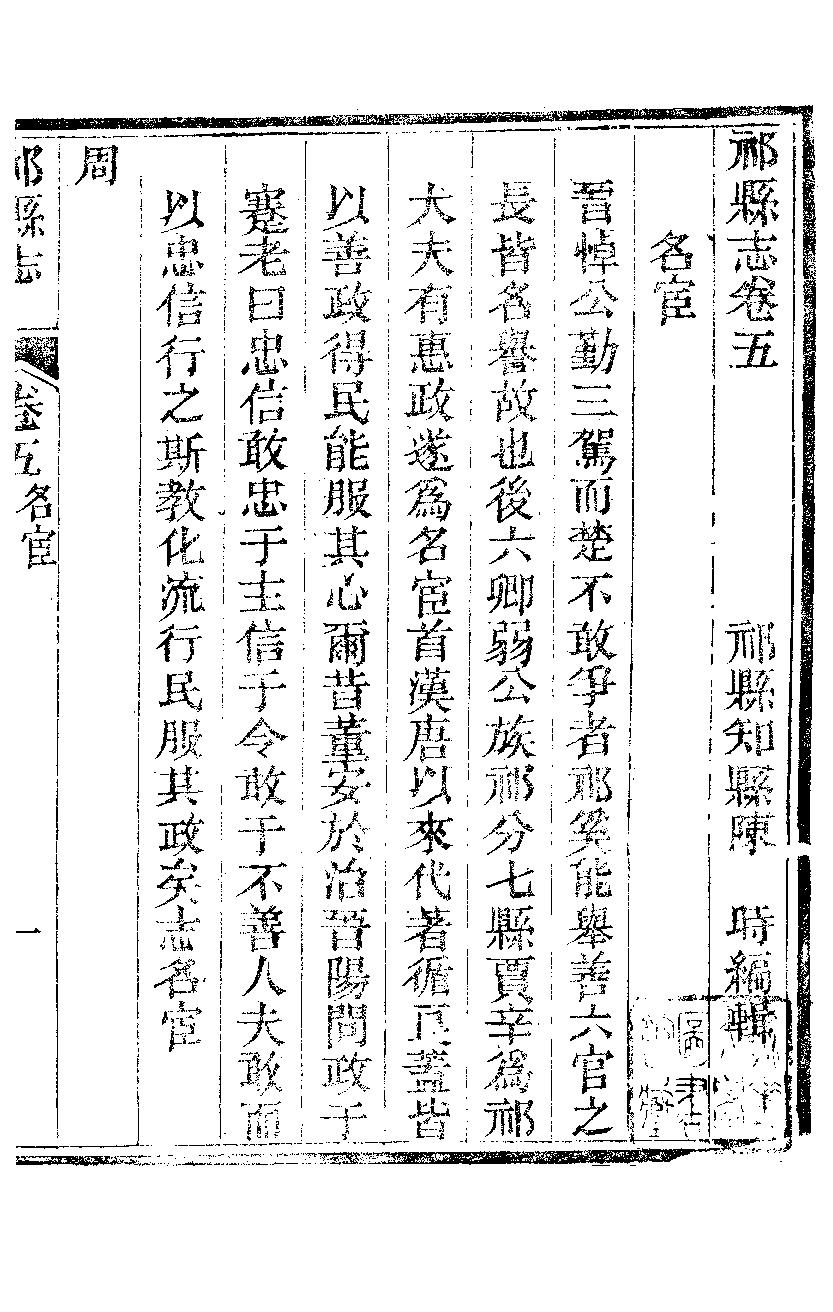 祁縣志卷五 祁縣知縣陳 時編輯
名宦
晋悼公勤三駕而楚不敢爭者祁奚能舉善六官之
長皆名譽故也後六卿弱公族祁分七縣賈辛爲祁
大夫有惠政遂爲名宦首漢唐以來代著循良蓋皆
以善政得民能服其心爾昔董安於治晉陽問政于
蹇老曰忠信敢忠于主信于令敢于不善人夫敢而
以忠信行之斯教化流行民服其政矣志名宦
周
祁縣志 卷五 名宦 一